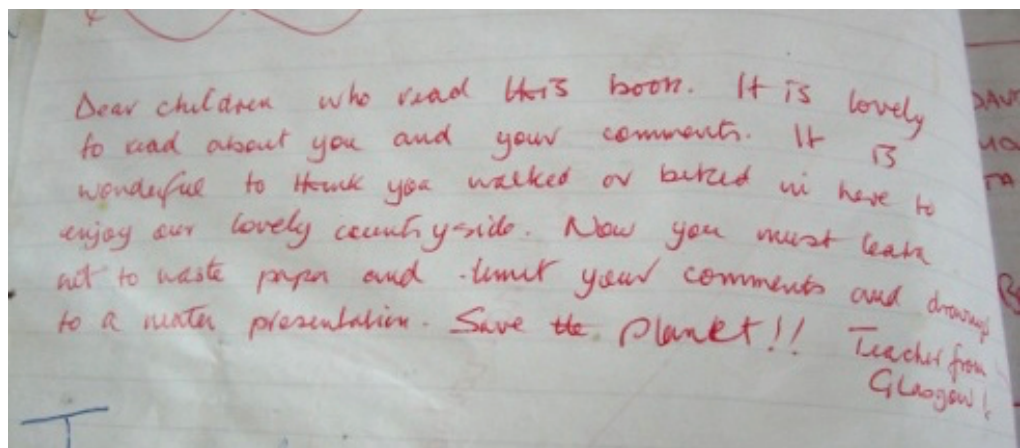 Dear children who read this book. It is lovely
to read about you and your comments. It is
wonderful to think you walked or biked in here to
enjoy our lovely countryside. Now you must learn
not to waste paper and limit your comments and drawings
to a neater presentation. Save the Planet!! Teacher from
Glasgow!